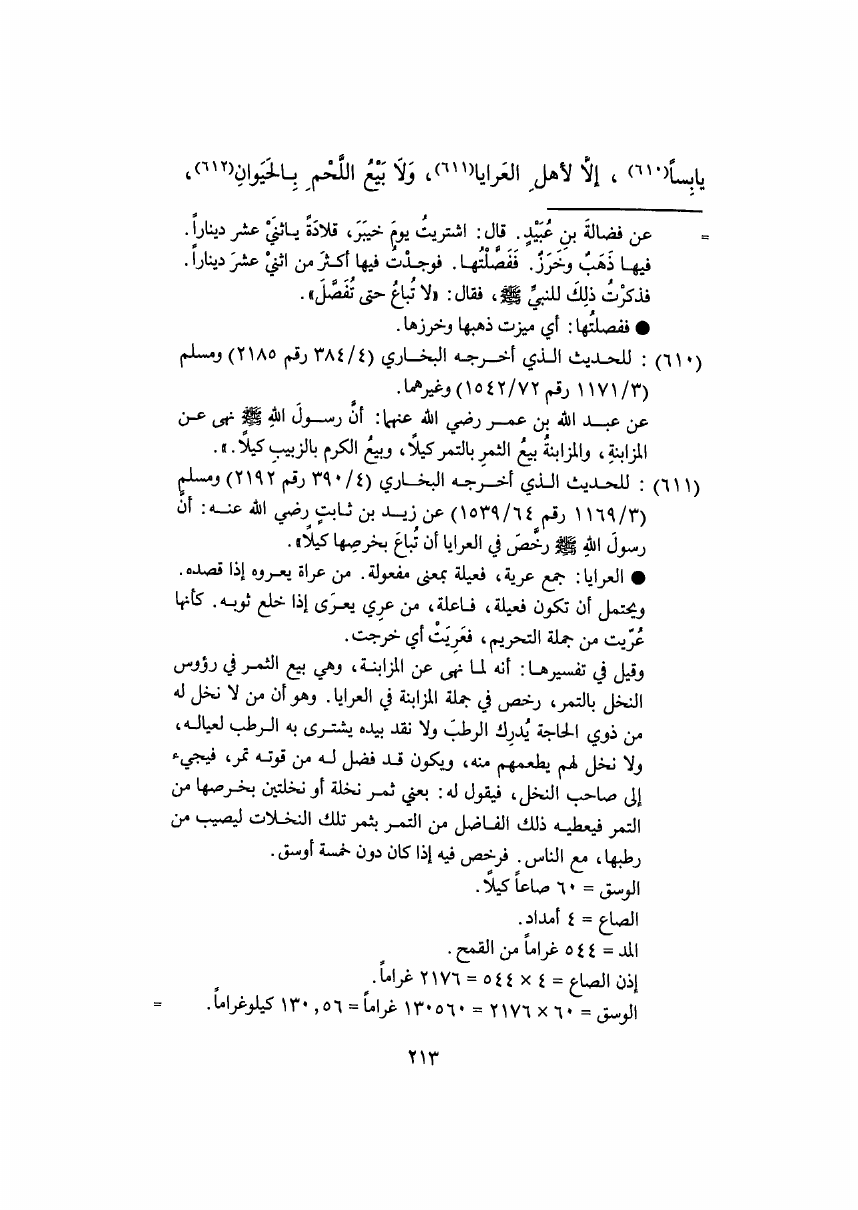 يابِساً(٦١٠) ، إلَّا لأهلِ العَرايا(٦١١)، وَلَا بَيْعُ اللَّحْمِ بِالحَيَوانِ(٦١٢)،
= عن فضالةَ بنِ عُبَيْدٍ. قال: اشتريتُ يومَ خيبَرَ، قلادَةً باثنَيْ عشر ديناراً.
فيها ذَهَبٌ وخَرَزٌ. فَفَصَّلْتُها. فوجدْتُ فيها أكثرَ من اثنيْ عشرَ ديناراً.
فذكرْتُ ذلِكَ للنبيِّ ﷺ، فقال: «لا تُباعُ حتى تُفَصَّلَ».
● ففصلتُها: أي ميزت ذهبها وخرزها.
(٦١٠) : للحديث الذي أخرجه البخاري (٣٨٤/٤ رقم ٢١٨٥) ومسلم
(١١٧١/٣ رقم ١٥٤٢/٧٢) وغيرهما.
عن عبد الله بن عمر رضي الله عنهما: أنَّ رسولَ اللهِ ﷺ نهى عن
المزابنةِ، والمزابنةُ بيعُ الثمرِ بالتمر كيلًا، وبيعُ الكرم بالزبيبِ كيلًا.».
(٦١١) : للحديث الذي أخرجه البخاري (٣٩٠/٤ رقم ٢١٩٢) ومسلم
(١١٦٩/٣ رقم ١٥٣٩/٦٤) عن زيد بن ثابتٍ رضي الله عنه: أنَّ
رسولَ اللهِ ﷺ رخَّصَ في العرايا أن تُباعَ بخرصِها كيلًا».
● العرايا: جمع عرية، فعيلة بمعنى مفعولة. من عراة يعروه إذا قصده.
ويحتمل أن تكون فعيلة، فاعلة، من عرِي يعرَى إذا خلع ثوبه. كأنها
عُرّيت من جملة التحريم، فعَرِيَتْ أي خرجت.
وقيل في تفسيرها: أنه لما نهى عن المزابنة، وهي بيع الثمر في رؤوس
النخل بالتمر، رخص في جملة المزابنة في العرايا. وهو أن من لا نخل له
من ذوي الحاجة يُدرِك الرطبَ ولا نقد بيده يشترى به الرطب لعياله،
ولا نخل لهم يطعمهم منه، ويكون قد فضل له من قوته تمر، فيجيء
إلى صاحب النخل، فيقول له: بعني ثمر نخلة أو نخلتين بخرصها من
التمر فيعطيه ذلك الفاضل من التمر بثمر تلك النخلات ليصيب من
رطبها، مع الناس. فرخص فيه إذا كان دون خمسة أوسق.
الوسق = ٦٠ صاعاً كيلًا.
الصاع = ٤ أمداد.
المد = ٥٤٤ غراماً من القمح.
إذن الصاع = ٤ × ٥٤٤ = ٢١٧٦ غراماً.
الوسق = ٦٠ × ٢١٧٦ = ١٣٠٥٦٠ غراماً = ١٣٠,٥٦ كيلوغراماً. =
٢١٣